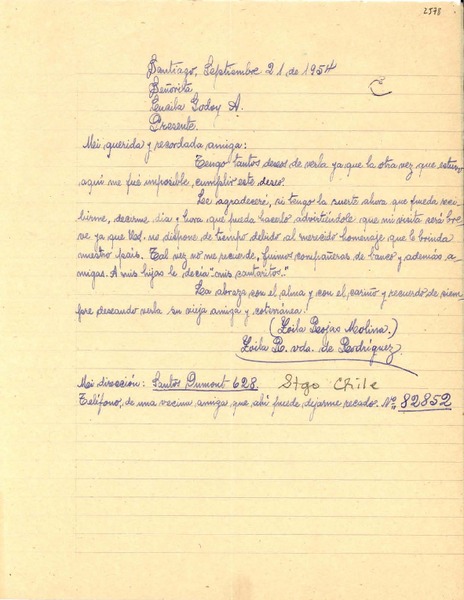 2578
Santiago, Septiembre 21 de 1954
Señorita
Lucila Godoy A.
Presente
Mi querida y recordada amiga:
Tengo tantos deseos de verla ya que la otra vez que estuvo
aquí me fué imposible, cumplir este deseo.
Le agradeceré, si tengo la suerte ahora que pueda reci-
birme, decirme día y hora que pueda hacerlo advirtiéndole que mi visita será bre-
ve ya que Ud. no dispone de tiempo debido al merecido homenaje que le brinda
nuestro país. Tal vez no me recuerde, fuimos compañeras de banco y además a-
migas. A mis hijas le decía "mis cantaritos."
La abraza con el alma y con el cariño y recuerdo de siem
pre deseando verla su vieja amiga y coterránea.
(Loila Rojas Molina.)
Loila R. vda. de Rodríguez.
Mi dirección: Santos Dumont 628. Stgo Chile
Teléfono, de una vecina amiga que ahí puede dejarme recado. Nº 82852